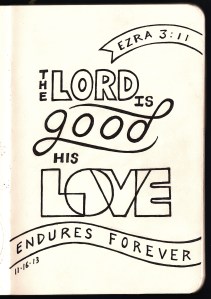 EZRA 3:11
THE LORD IS
good
HIS
LOVE
ENDURES FOREVER
11-16-13